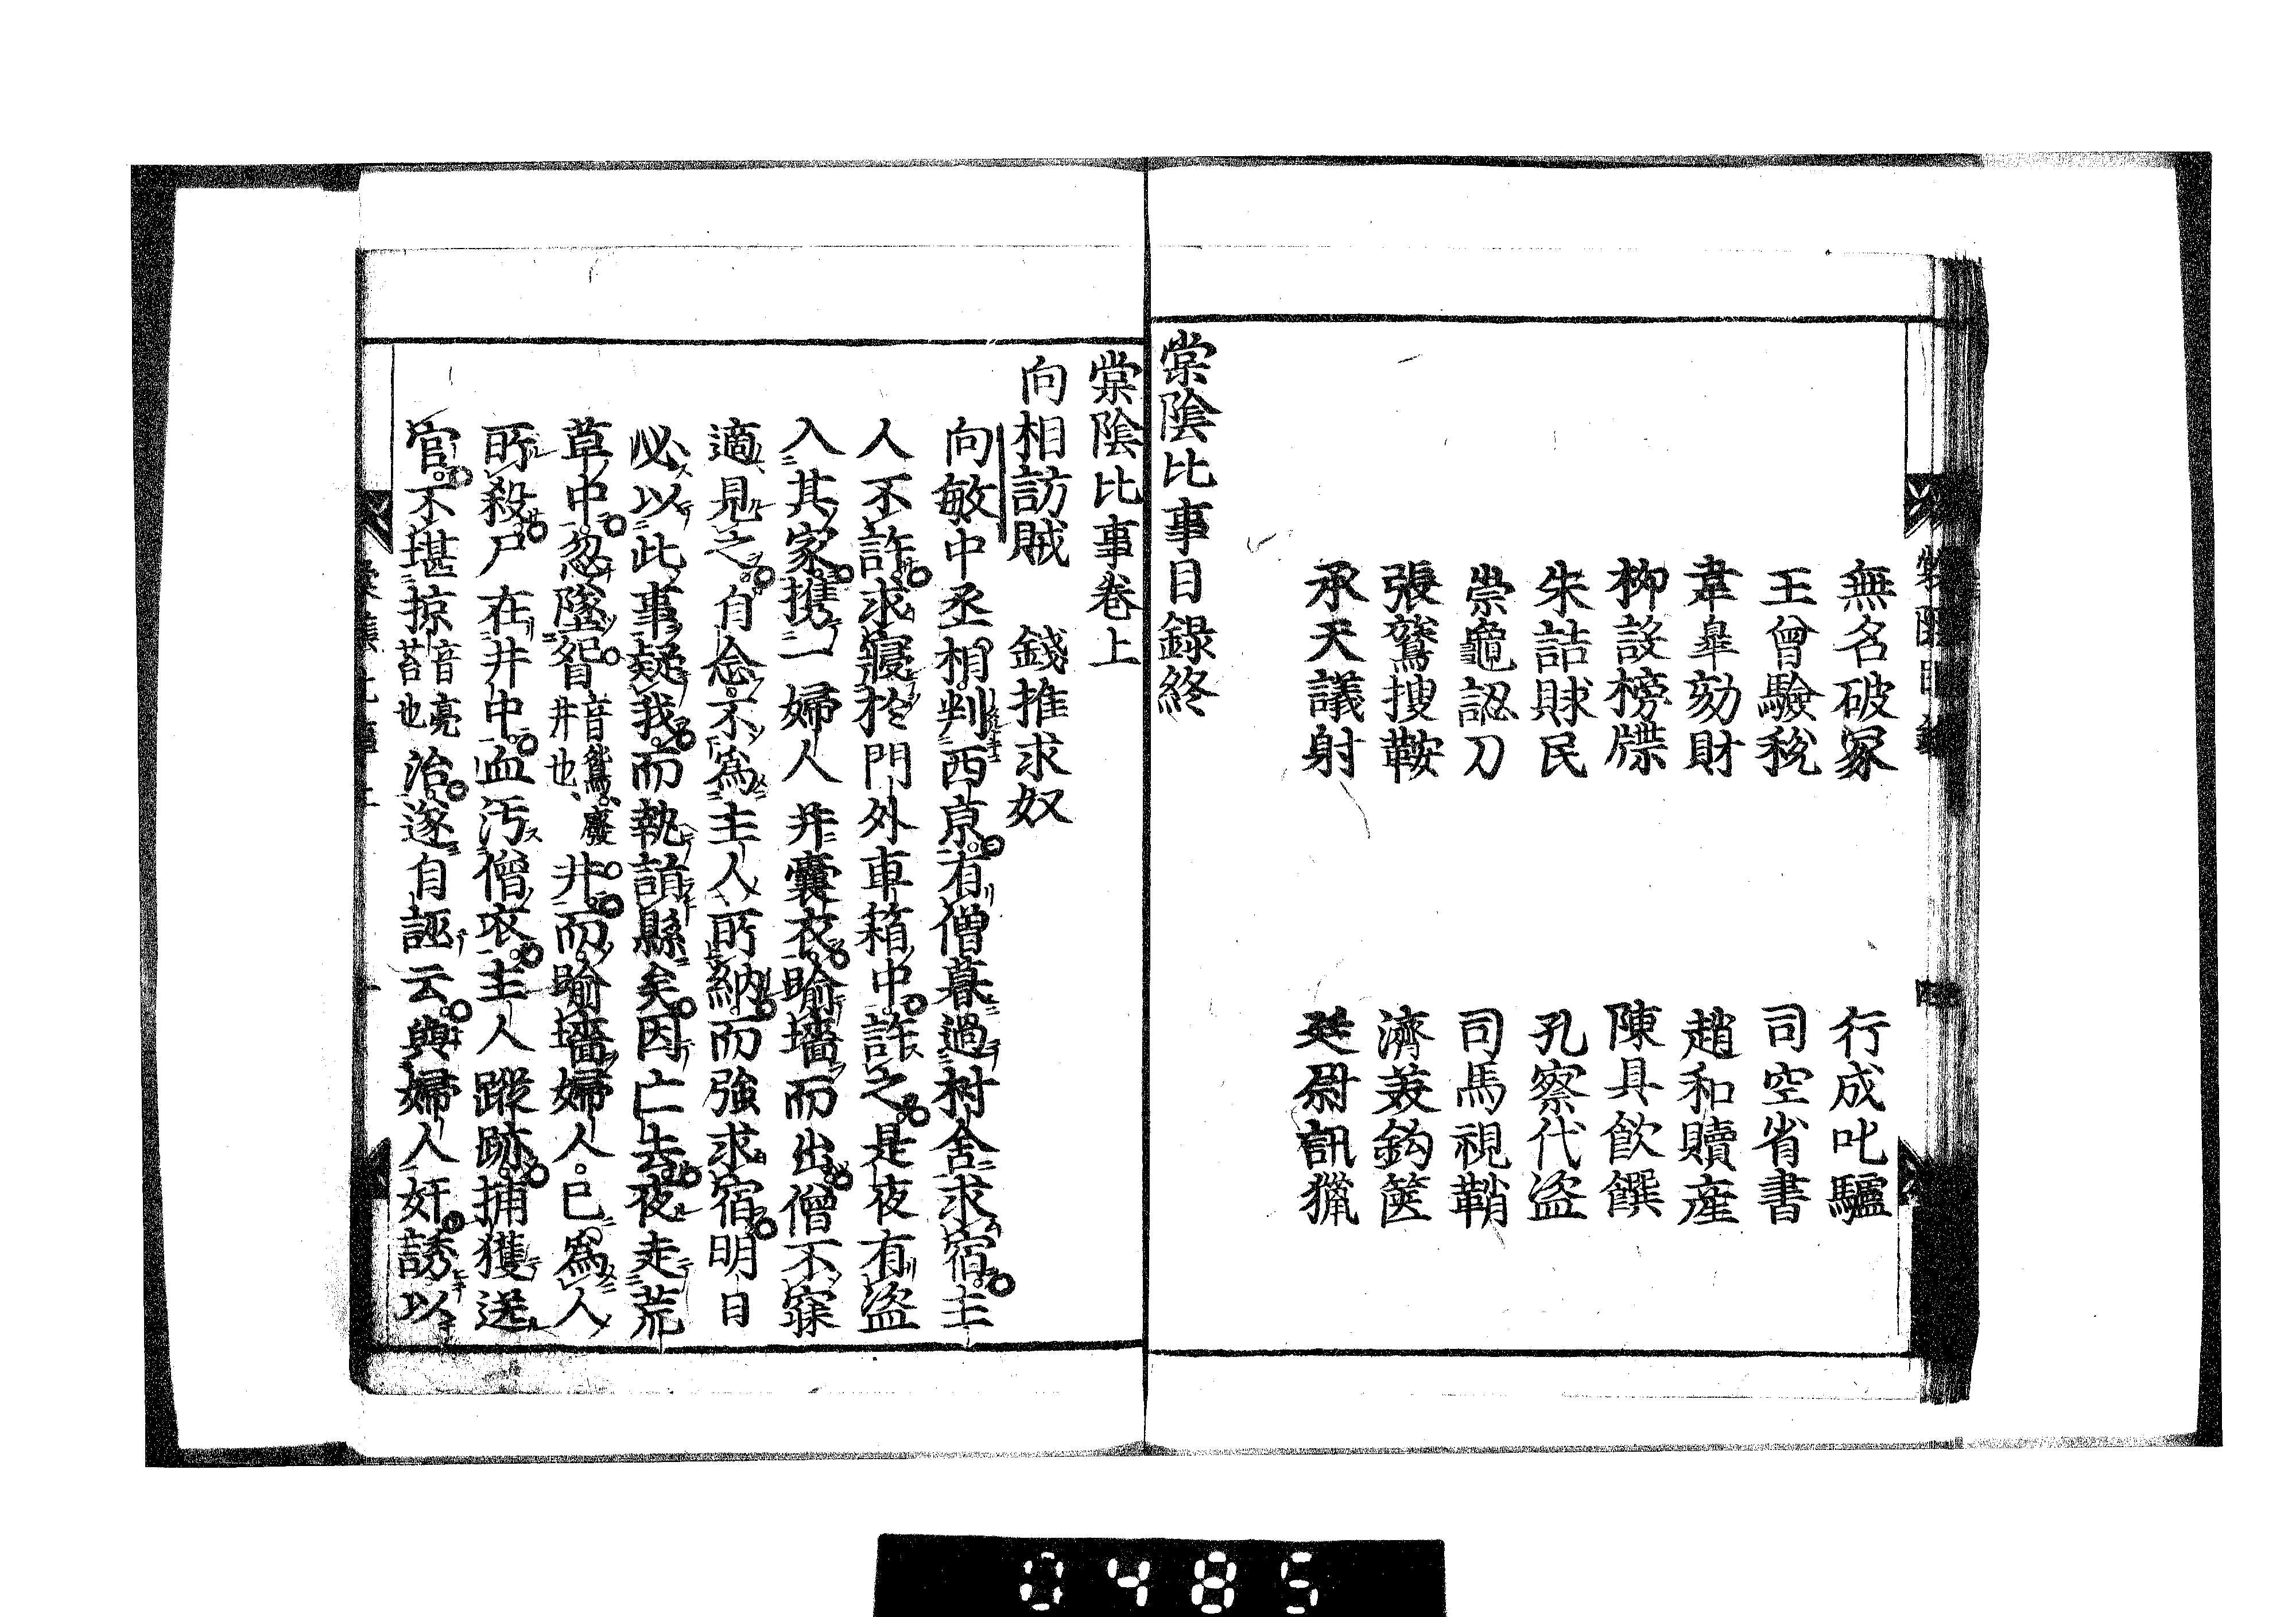 無名破冢　行成叱驢
王曾驗稅　司空省書
韋皐劾財　趙和贖産
柳設榜牒　陳具飲饌
朱詰賕民　孔察代盜
崇龜認刀　司馬視鞘
張鷟搜鞍　濟美鈎篋
承天議射　廷尉訊獵
棠陰比事目錄終
棠陰比事卷上
向相訪賊　錢推求奴
向敏中丞相判西京有僧暮過村舍求宿主
人不許求寢於門外車箱中許之是夜有盜
入其家携一婦人并囊衣踰墻而出僧不寐
適見之自念不為主人所納而強求宿明日
必以此事疑我而執詣縣矣因亡去夜走荒
草中忽墜眢音鴛廢井也井而踰墻婦人已為人
所殺尸在井中血汚僧衣主人蹤跡捕獲送
官不堪掠音亮笞也治遂自誣云與婦人奸誘以
0485